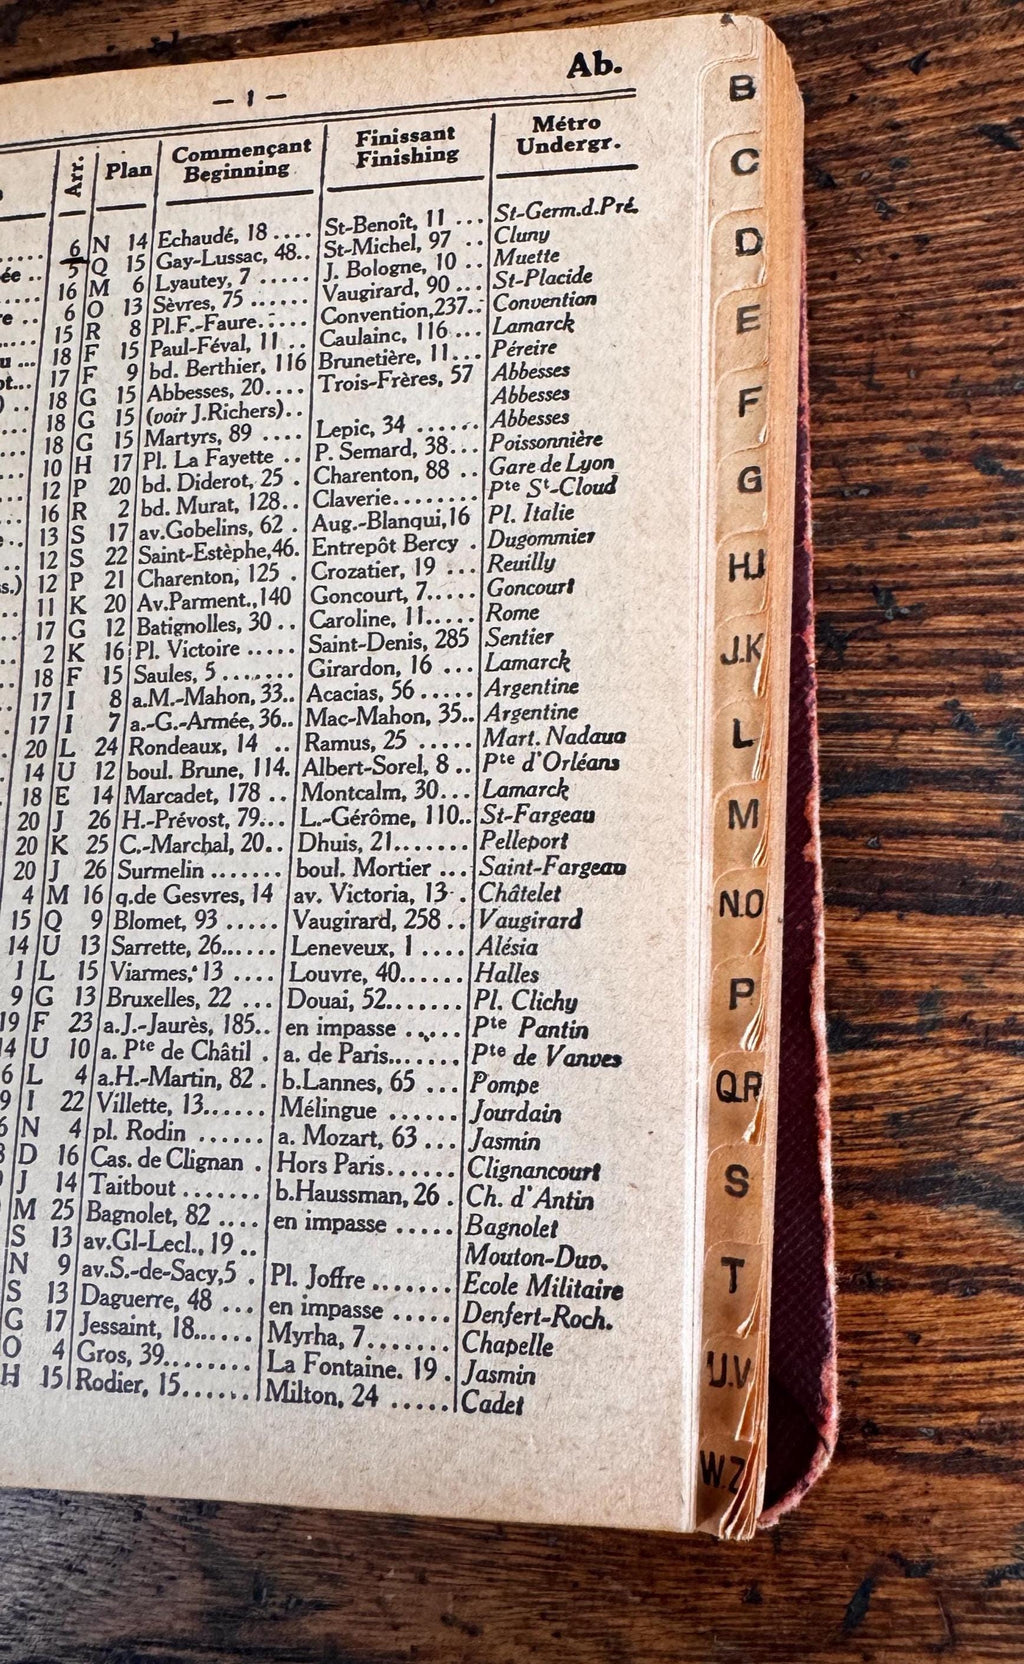 Ab.
— 1 —
Arr. Plan Commençant Beginning Finissant Finishing Métro Undergr.
6 N 14 Echaudé, 18 .... St-Benoît, 11 ... St-Germ.d.Pré.
ée .. 5 Q 15 Gay-Lussac, 48.. St-Michel, 97 .. Cluny
16 M 6 Lyautey, 7 ..... J. Bologne, 10 .. Muette
re .. 6 O 13 Sèvres, 75 ...... Vaugirard, 90 ... St-Placide
15 R 8 Pl.F.-Faure..... Convention,237... Convention
u ... 18 F 15 Paul-Féval, 11 .. Caulainc, 116 ... Lamarck
ot... 17 F 9 bd. Berthier, 116 Brunetière, 11... Péreire
) .. 18 G 15 Abbesses, 20.... Trois-Frères, 57 Abbesses
18 G 15 (voir J.Richers).. Abbesses
18 G 15 Martyrs, 89 .... Lepic, 34 ...... Abbesses
10 H 17 Pl. La Fayette .. P. Semard, 38... Poissonnière
12 P 20 bd. Diderot, 25 . Charenton, 88 .. Gare de Lyon
16 R 2 bd. Murat, 128.. Claverie........ Pte St-Cloud
e.. 13 S 17 av.Gobelins, 62 . Aug.-Blanqui,16 Pl. Italie
12 S 22 Saint-Estèphe,46. Entrepôt Bercy . Dugommier
ss.) 12 P 21 Charenton, 125 . Crozatier, 19 ... Reuilly
11 K 20 Av.Parment.,140 Goncourt, 7..... Goncourt
17 G 12 Batignolles, 30 .. Caroline, 11..... Rome
2 K 16 Pl. Victoire ..... Saint-Denis, 285 Sentier
18 F 15 Saules, 5 ....... Girardon, 16 ... Lamarck
17 I 8 a.M.-Mahon, 33.. Acacias, 56 ..... Argentine
17 I 7 a.-G.-Armée, 36.. Mac-Mahon, 35.. Argentine
20 L 24 Rondeaux, 14 .. Ramus, 25 ..... Mart. Nadaua
14 U 12 boul. Brune, 114. Albert-Sorel, 8 .. Pte d'Orléans
18 E 14 Marcadet, 178 .. Montcalm, 30... Lamarck
20 J 26 H.-Prévost, 79... L.-Gérôme, 110.. St-Fargeau
20 K 25 C.-Marchal, 20.. Dhuis, 21....... Pelleport
20 J 26 Surmelin ....... boul. Mortier ... Saint-Fargeau
4 M 16 q.de Gesvres, 14 av. Victoria, 13 . Châtelet
15 Q 9 Blomet, 93 ..... Vaugirard, 258 .. Vaugirard
14 U 13 Sarrette, 26...... Leneveux, 1 .... Alésia
1 L 15 Viarmes, 13 .... Louvre, 40...... Halles
9 G 13 Bruxelles, 22 ... Douai, 52....... Pl. Clichy
19 F 23 a.J.-Jaurès, 185.. en impasse ..... Pte Pantin
14 U 10 a. Pte de Châtil . a. de Paris....... Pte de Vanves
6 L 4 a.H.-Martin, 82 . b.Lannes, 65 ... Pompe
9 I 22 Villette, 13...... Mélingue ...... Jourdain
6 N 4 pl. Rodin ...... a. Mozart, 63 ... Jasmin
8 D 16 Cas. de Clignan . Hors Paris...... Clignancourt
J 14 Taitbout ....... b.Haussman, 26 . Ch. d'Antin
M 25 Bagnolet, 82 .... en impasse ..... Bagnolet
S 13 av.Gl-Lecl., 19 .. Mouton-Duv.
N 9 av.S.-de-Sacy,5 . Pl. Joffre ....... Ecole Militaire
S 13 Daguerre, 48 ... en impasse ..... Denfert-Roch.
G 17 Jessaint, 18...... Myrha, 7....... Chapelle
O 4 Gros, 39........ La Fontaine. 19 . Jasmin
H 15 Rodier, 15...... Milton, 24 ..... Cadet
B
C
D
E
F
G
H.I
J.K
L
M
N.O
P
Q.R
S
T
U.V
W.Z